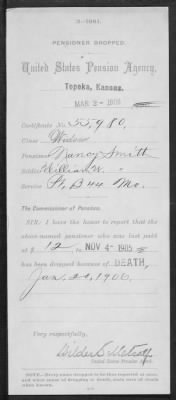 3-1081.
PENSIONER DROPPED.
United States Pension Agency,
Topeka, Kansas.
MAR 2 - 1906
Certificate No. 55,980.
Class Widow
Pensioner Nancy Smith
Soldier William W. "
Service Pt. B 44 Mo.
The Commissioner of Pensions.
SIR: I have the honor to report that the
above-named pensioner who was last paid
at $ 12 to NOV 4 - 1905
has been dropped because of DEATH,
Jan. 20, 1906.
Very respectfully,
Wilder S. Metcalf
United States Pension Agent.
NOTE.—Every name dropped to be thus reported at once,
and when cause of dropping is death, state date of death
when known.